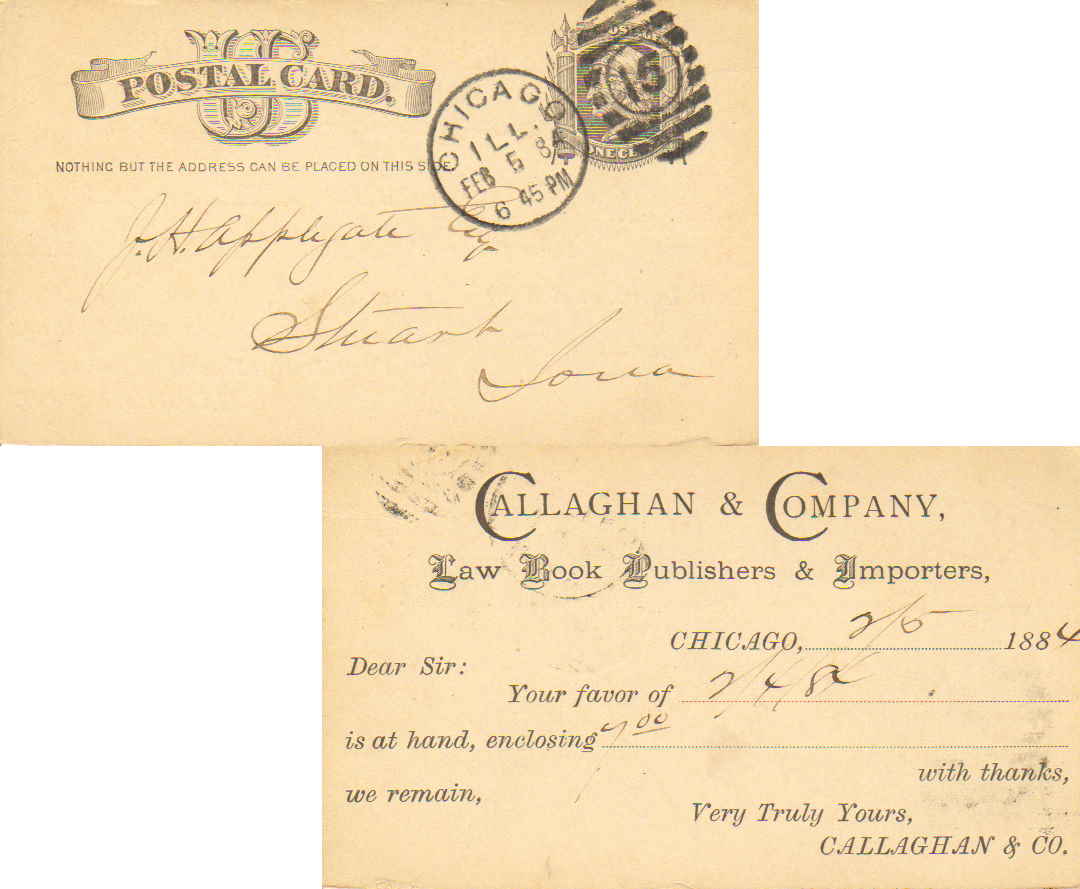 US
POSTAL CARD.
NOTHING BUT THE ADDRESS CAN BE PLACED ON THIS SIDE.
CHICAGO
ILL.
FEB 5 84
6 45 PM
15
ONE CENT
J. H. Applegate Esq
Stuart
Iowa
CALLAGHAN & COMPANY,
Law Book Publishers & Importers,
CHICAGO, 2/5 1884
Dear Sir:
Your favor of 2/4/84
is at hand, enclosing 7.00
with thanks,
we remain,
Very Truly Yours,
CALLAGHAN & CO.